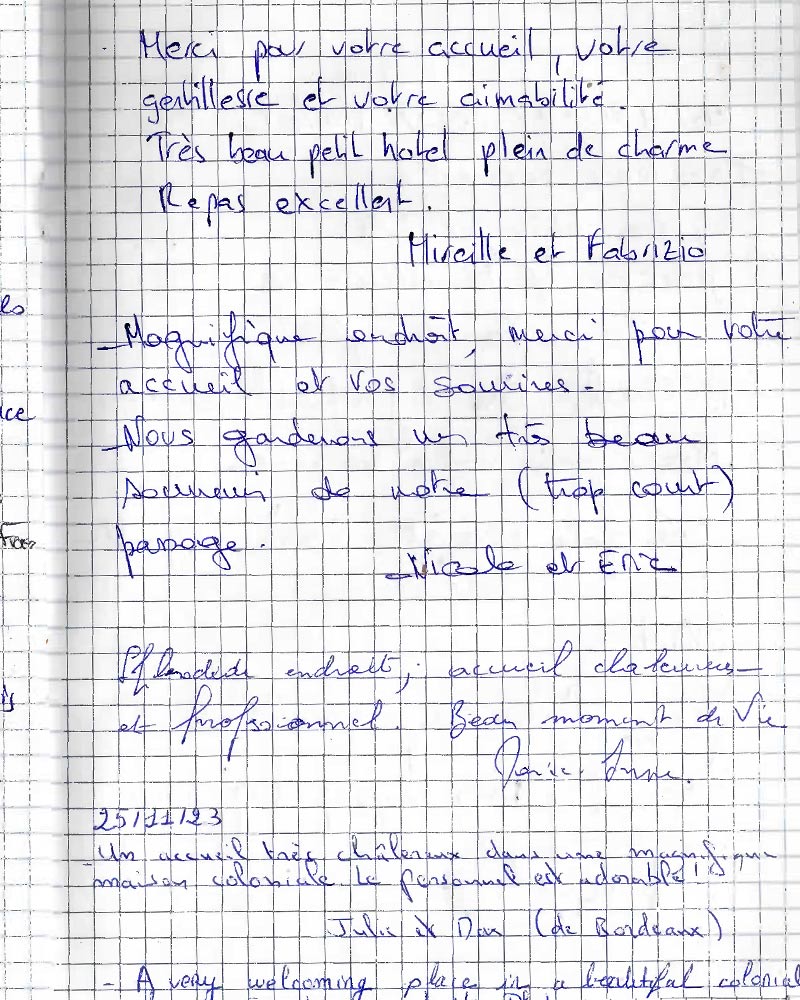 Merci pour votre accueil, votre
gentillesse et votre aimabilité.
Très beau petit hotel plein de charme
Repas excellent.
Mireille et Fabrizio
Magnifique endroit, merci pour votre
accueil et vos sourires.
Nous garderons un très beau
souvenir de notre (trop court)
passage.
Nicole et Eric
Splendide endroit, accueil chaleureux
et professionnel. Beau moment de Vie
25/11/23
Un accueil très châlereux dans une magnifique
maison coloniale. Le personnel est adorable!
Julie et Max (de Bordeaux)
- A very welcoming place in a beautiful colonial